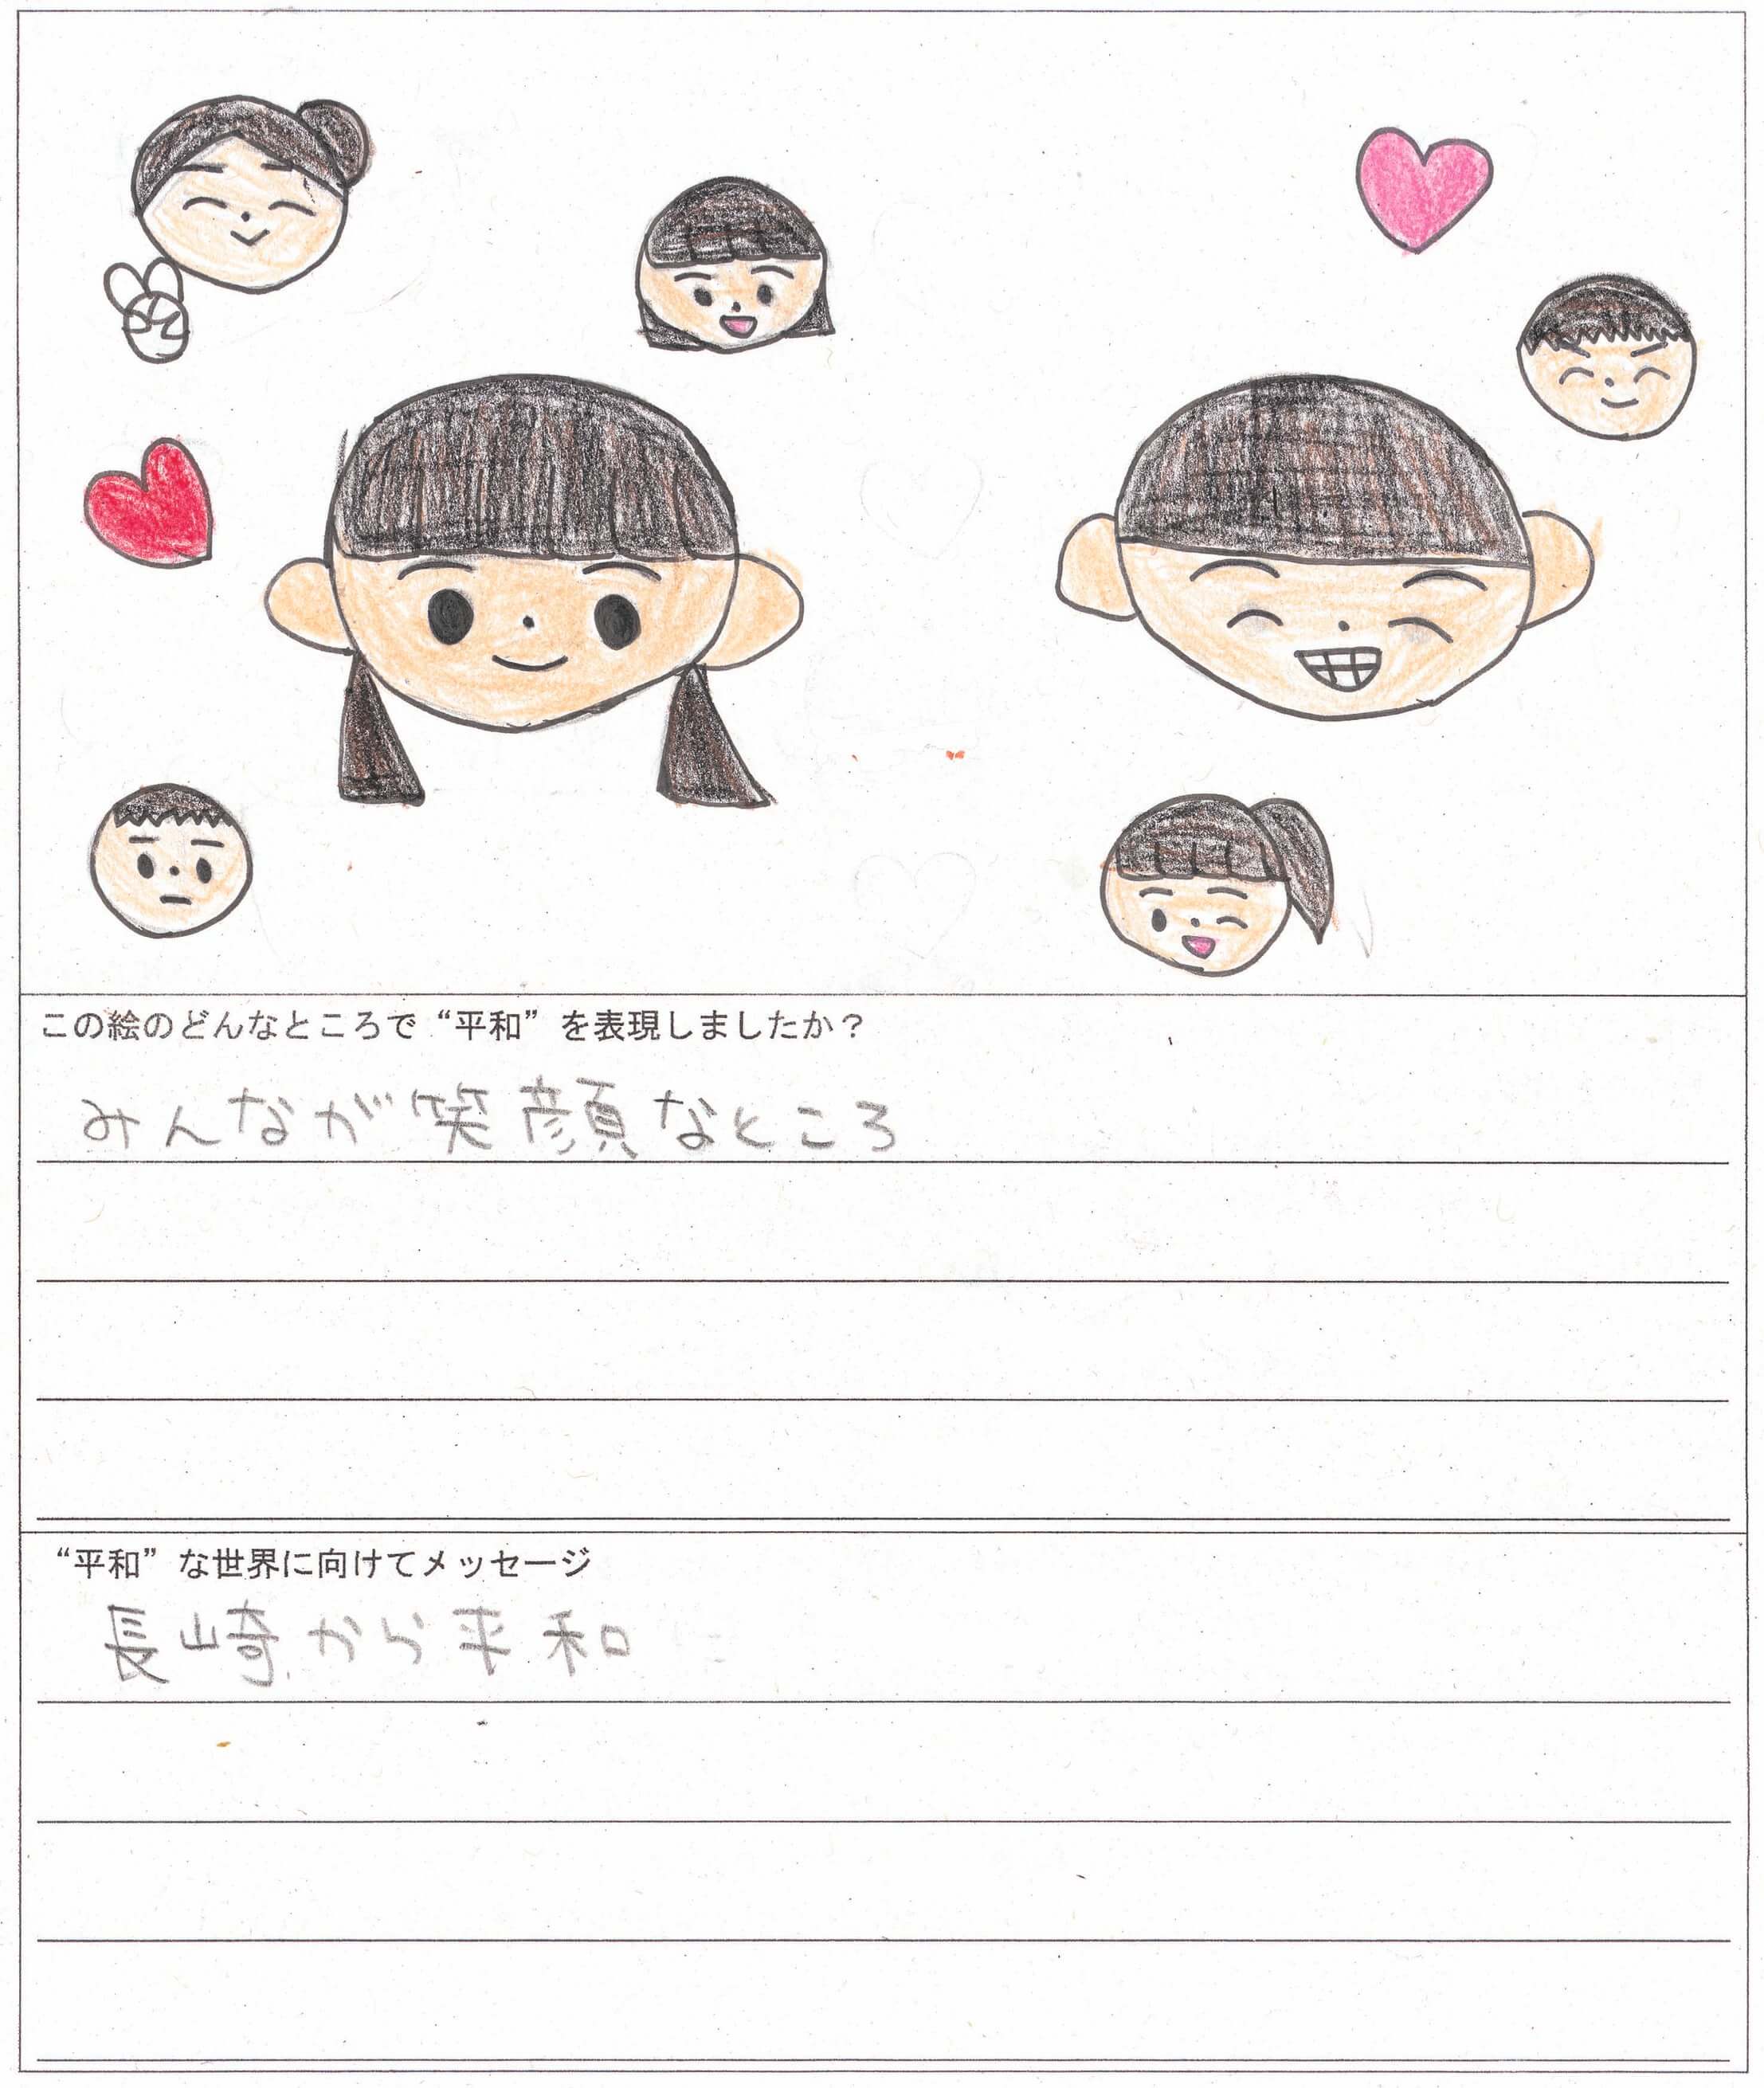 この絵のどんなところで“平和”を表現しましたか？
みんなが笑顔なところ
“平和”な世界に向けてメッセージ
長崎から平和